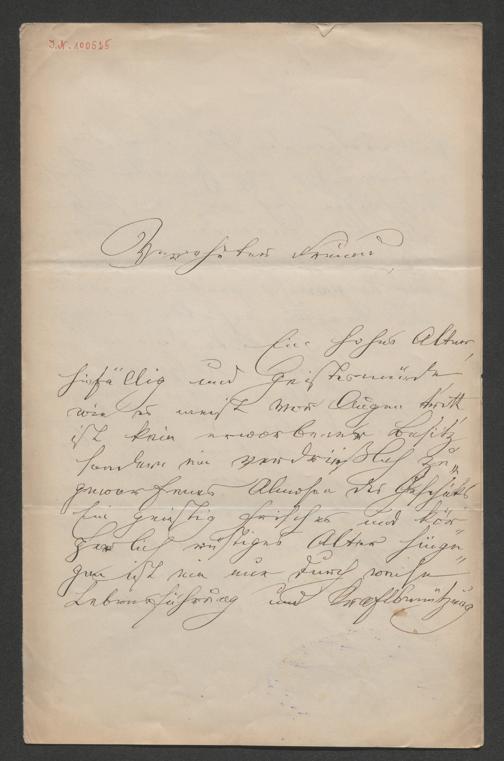 I.N. 100525
Verehrter Freund,
Ein hohes Alter,
hinfällig und geistesmüde,
wie es meist vor Augen tritt,
ist kein erworbener Besitz
sondern ein verdrießlich zu-
geworfenes Almosen des Geschicks
Ein geistig frisches und kör-
perlich rüstiges Alter hinge-
gen ist ein nur durch weise
Lebensführung und Kraftbenützung